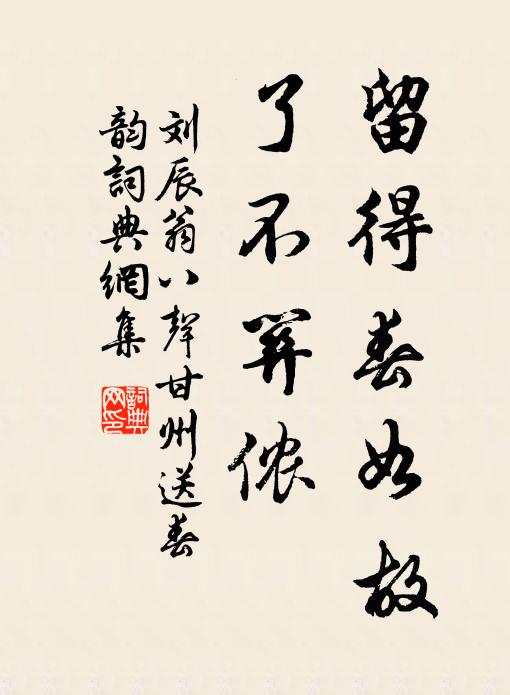 留得春如故
了不关侬
刘辰翁八聲甘州送春
韵詞典網集
詞典网印